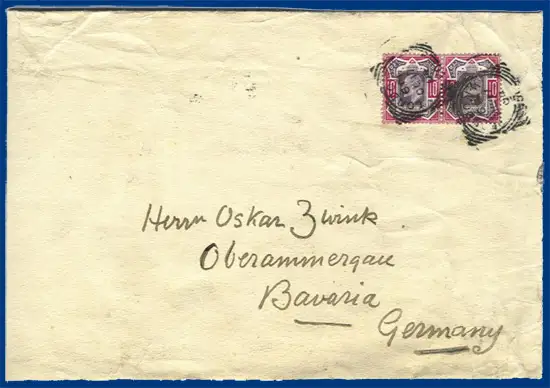 Herrn Oskar Zwink
Oberammergau
Bavaria
Germany